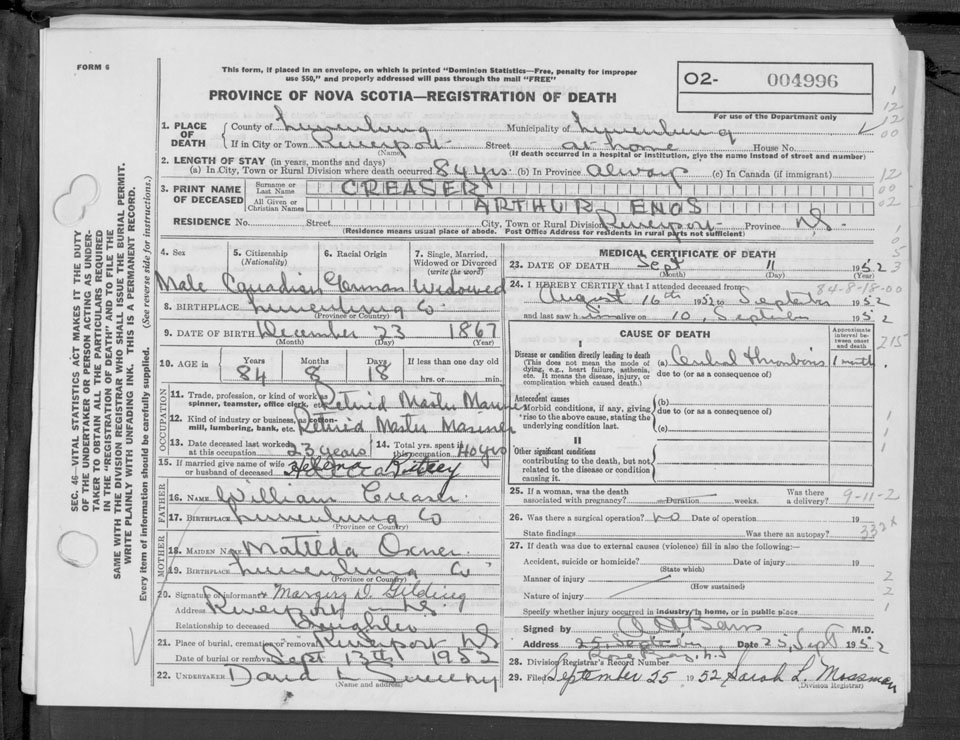 FORM 6
This form, if placed in an envelope, on which is printed "Dominion Statistics—Free, penalty for improper
use $50," and properly addressed will pass through the mail "FREE"
O2- 004996
PROVINCE OF NOVA SCOTIA—REGISTRATION OF DEATH
For use of the Department only
1. PLACE OF DEATH County of Lunenburg Municipality of Lunenburg
If in City or Town Riverport Street at home House No.
(Name) (If death occurred in a hospital or institution, give the name instead of street and number)
2. LENGTH OF STAY (in years, months and days)
(a) In City, Town or Rural Division where death occurred 84 yrs. (b) In Province always (c) In Canada (if immigrant)
3. PRINT NAME OF DECEASED Surname or Last Name CREASER
All Given or Christian Names ARTHUR ENOS
RESIDENCE No. Street City, Town or Rural Division Riverport Province NS.
(Residence means usual place of abode. Post Office Address for residents in rural parts not sufficient)
4. Sex 5. Citizenship (Nationality) 6. Racial Origin 7. Single, Married, Widowed or Divorced (write the word)
Male Canadian German Widowed
8. BIRTHPLACE Lunenburg Co
(Province or Country)
9. DATE OF BIRTH December 23 1867
(Month) (Day) (Year)
10. AGE in Years Months Days If less than one day old
84 8 18 hrs. or min.
OCCUPATION
11. Trade, profession, or kind of work as spinner, teamster, office clerk, etc. Retired Master Mariner
12. Kind of industry or business, as cotton-mill, lumbering, bank, etc. Retired Master Mariner
13. Date deceased last worked at this occupation 23 years 14. Total yrs. spent in this occupation 40 yrs
15. If married give name of wife or husband of deceased Ritcey
FATHER
16. NAME William Creaser
17. BIRTHPLACE Lunenburg Co
(Province or Country)
MOTHER
18. MAIDEN NAME Matilda Oxner
19. BIRTHPLACE Lunenburg Co
(Province or Country)
20. Signature of informant Margery D. Gelding
Address Riverport NS.
Relationship to deceased Daughter
21. Place of burial, cremation or removal Riverport NS
Date of burial or removal Sept 13th 1952
22. UNDERTAKER David L Sweeny
(Name and address)
MEDICAL CERTIFICATE OF DEATH
23. DATE OF DEATH Sept 11 1952
(Month) (Day)
84-8-18-00
24. I HEREBY CERTIFY that I attended deceased from:
August 16th 1952 to September 1952
and last saw h alive on 10, September 1952
CAUSE OF DEATH
Approximate interval between onset and death
I
Disease or condition directly leading to death
(This does not mean the mode of dying, e.g., heart failure, asthenia, etc. It means the disease, injury, or complication which caused death.)
(a) Cerebral Thrombosis 1 month
due to (or as a consequence of)
Antecedent causes
Morbid conditions, if any, giving rise to the above cause, stating the underlying condition last.
(b)
due to (or as a consequence of)
(c)
II
Other significant conditions
contributing to the death, but not related to the disease or condition causing it.
25. If a woman, was the death associated with pregnancy? Duration weeks. Was there a delivery?
9-11-2
26. Was there a surgical operation? no Date of operation 19
State findings Was there an autopsy?
27. If death was due to external causes (violence) fill in also the following:—
Accident, suicide or homicide? Date of injury 19
(State which)
Manner of injury
(How sustained)
Nature of injury
Specify whether injury occurred in industry, in home, or in public place
Signed by M.D.
Address 25, September Date 25, Sept 1952
Rose Bay, N.S
28. Division Registrar's Record Number
29. Filed September 25 1952 Sarah L. Mossman
(Division Registrar)
SEC. 46—VITAL STATISTICS ACT MAKES IT THE DUTY
OF THE UNDERTAKER OR PERSON ACTING AS UNDER-
TAKER TO OBTAIN ALL THE PARTICULARS REQUIRED
IN THE "REGISTRATION OF DEATH" AND TO FILE THE
SAME WITH THE DIVISION REGISTRAR WHO SHALL ISSUE THE BURIAL PERMIT.
WRITE PLAINLY WITH UNFADING INK. THIS IS A PERMANENT RECORD.
Every item of information should be carefully supplied. (See reverse side for instructions.)